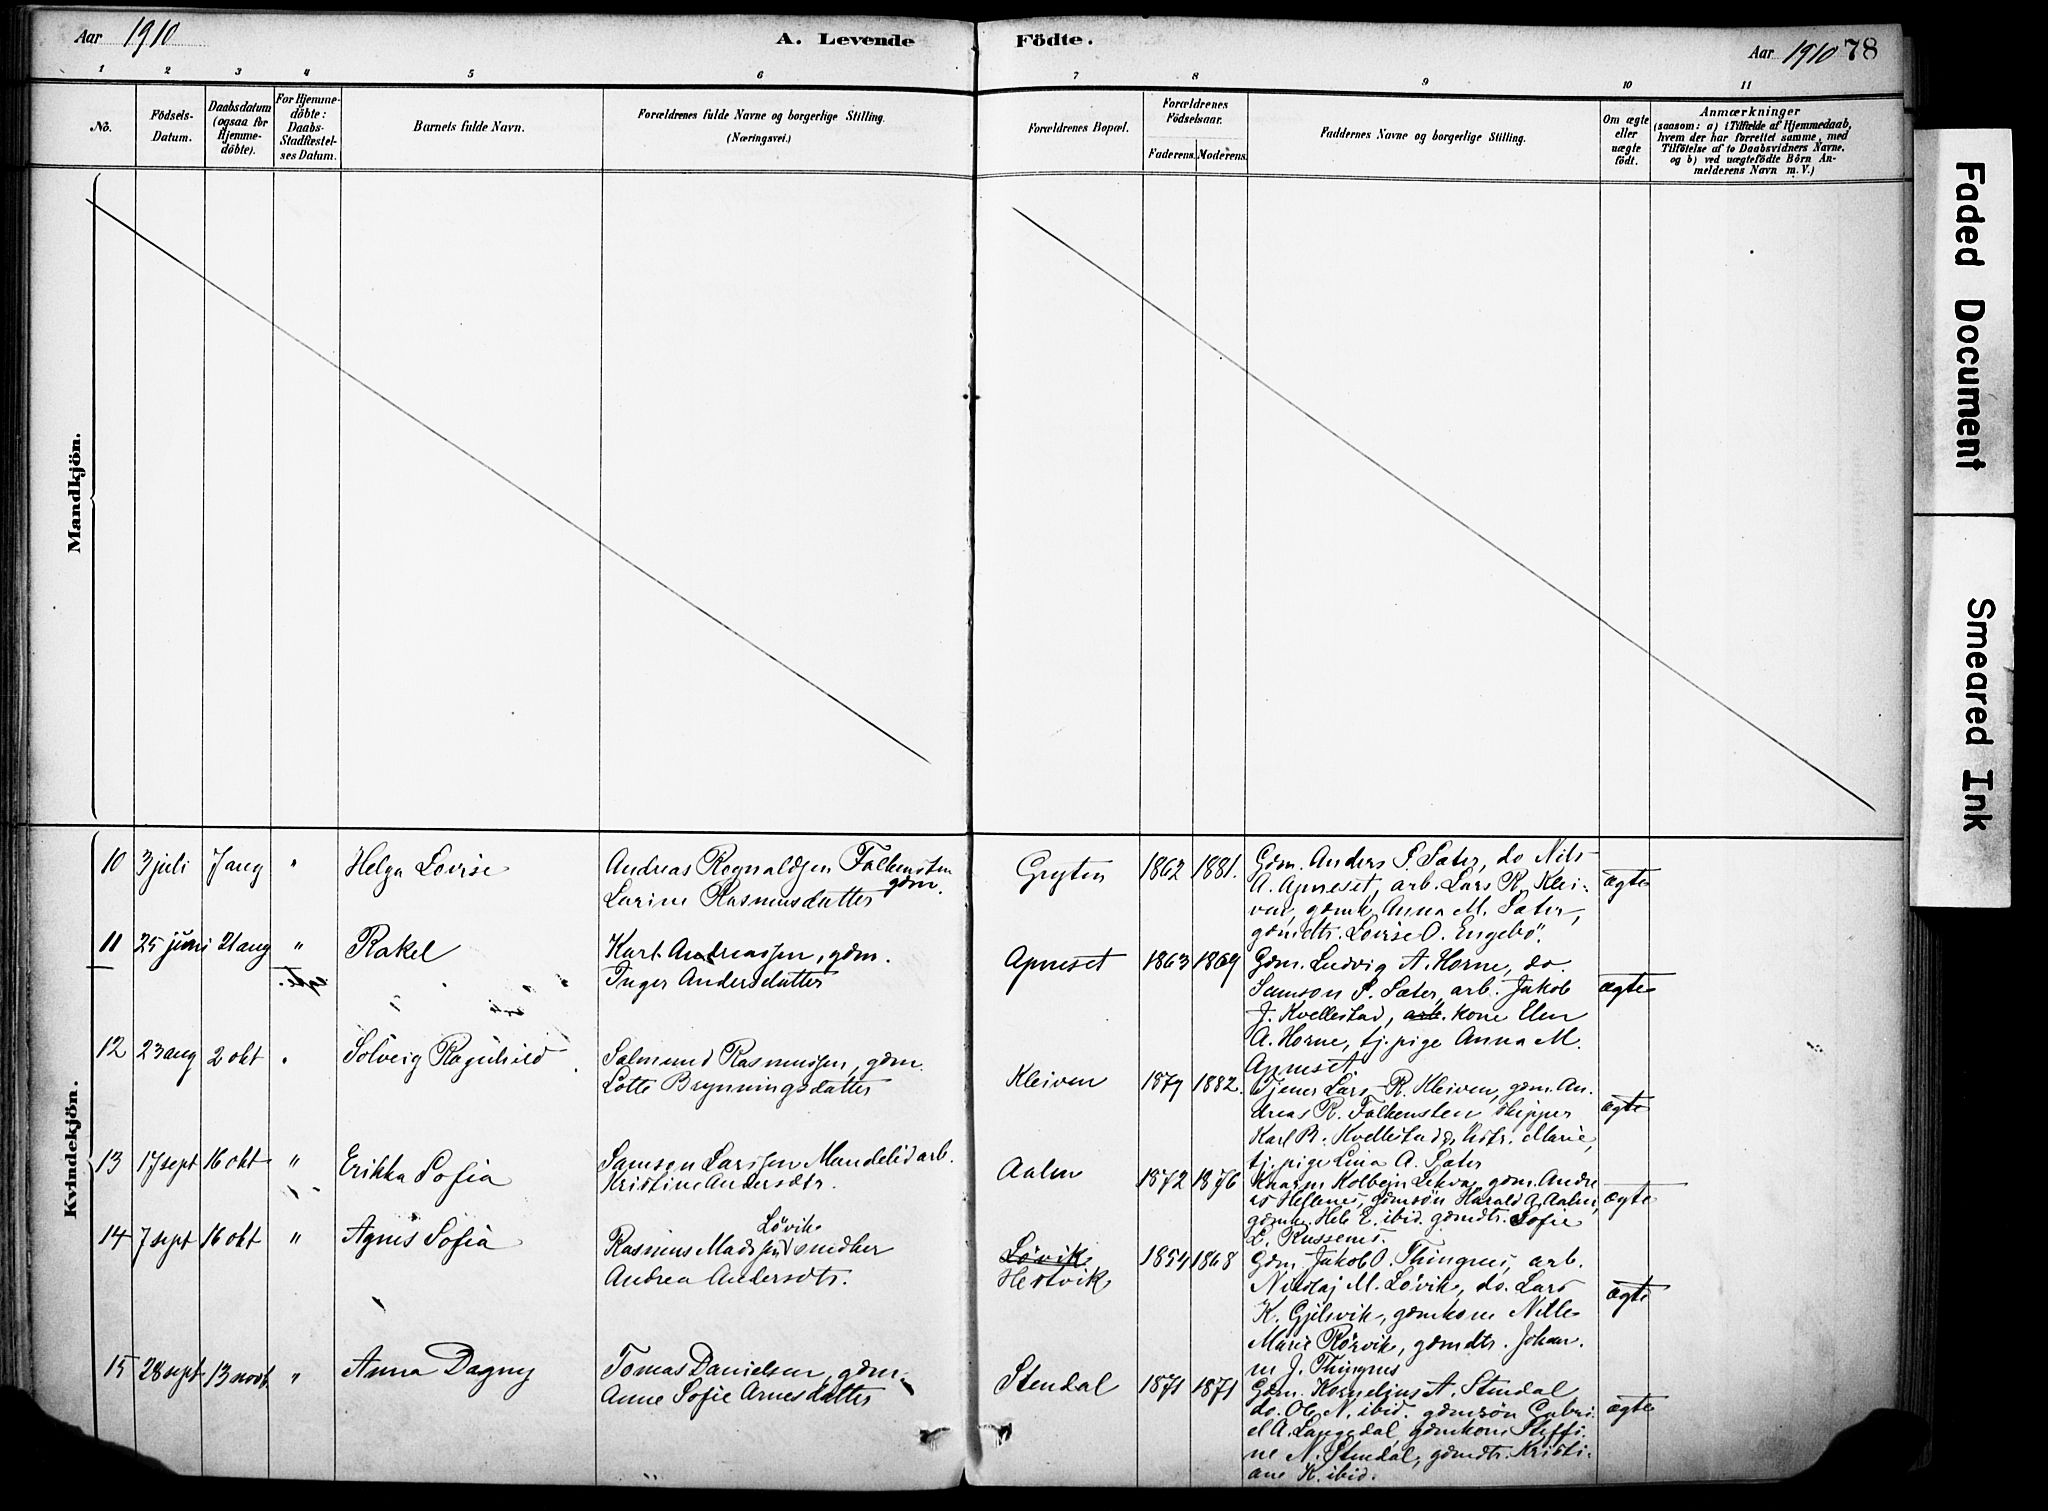 Aar 1910
A. Levende Födte.
Aar 1910 78
1 2 3 4 5 6 7 8 9 10 11
No.
Födsels-
Datum.
Daabsdatum
(ogsaa for
Hjemme-
döbte).
For Hjemme-
döbte:
Daabs-
Stadfæstel-
ses Datum.
Barnets fulde Navn.
Forældrenes fulde Navne og borgerlige Stilling.
(Næringsvei.)
Forældrenes Bopæl.
Forældrenes
Födselsaar.
Faderens. Moderens.
Faddernes Navne og borgerlige Stilling.
Om ægte
eller
uægte
födt.
Anmærkninger
(saasom: a) i Tilfælde af Hjemmedaab,
hvem der har forrettet samme, med
Tilföielse af to Daabsvidners Navne.
og b) ved uægtefödte Börn An-
melderens Navn m. V.)
Mandkjön.
Kvindekjön.
10 3 juli 7 aug " Helga Lovise
Andreas Rognaldsen Falkensten
gdm.
Larine Rasmusdatter
Gryten 1862 1881.
Gdm. Anders S. Sæter, do Nils
A. Apneset, arb. Lars R. Klei-
ven, gdmk. Anna M. Sæter,
gdmdtr. Lovise O. Engebö.
ægte
11 25 juni 21 aug " Rakel
Karl Andreassen, gdm.
Inger Andersdatter
Apneset 1863 1869
Gdm. Ludvig A. Horne, do.
Samson S. Sæter, arb. Jakob
J. Kvellestad, arb. kone Elen
A. Horne, tj. pige Anna M.
Apneset.
ægte
12 23 aug 2 okt " Solveig Ragnhild
Salmund Rasmussen, gdm.
Lotte Brynningsdatter
Kleiven 1879 1882.
Tjener Lars R. Kleiven, gdm. An-
dreas R. Falkensten skipper
Karl B. Kvellestad, Marie,
tj. pige Lina A. Sæter
ægte
13 17 sept 16 okt " Erikka Sofia
Samson Larssen Mandelid arb.
Kristine Andersdtr.
Aalen 1872 1876
Kolbein Lekva, gdm. Andre
as Hellenes, gdmsön Harald A. Aalen,
gdmk. Hele E. ibid. gdmdtr. Sofie
L. Russenes.
ægte
14 7 sept 16 okt " Agnes Sofia
Rasmus Madssen Lövik snedker
Andrea Andersdtr.
Lövik
Hestvik
1854 1868
Gdm. Jakob O. Thingnes, arb.
Nikolaj M. Lövik, do. Lars
K. Gjelsvik, gdmkone Nille
Marie Rörvik, gdmdtr. Johan-
ne J. Thingnes
ægte
15 28 sept 13 novb. " Anna Dagny
Tomas Danielsen, gdm.
Anne Sofie Arnesdatter
Stendal 1871 1871
Gdm. Kornelius A. Stendal
do. Ole N. ibid. gdmsön Gabri-
el A. Langedal, gdmkone Steffi-
ne N. Stendal, gdmdtr. Kristi-
ane K. ibid.
ægte
Faded Document
Smeared Ink